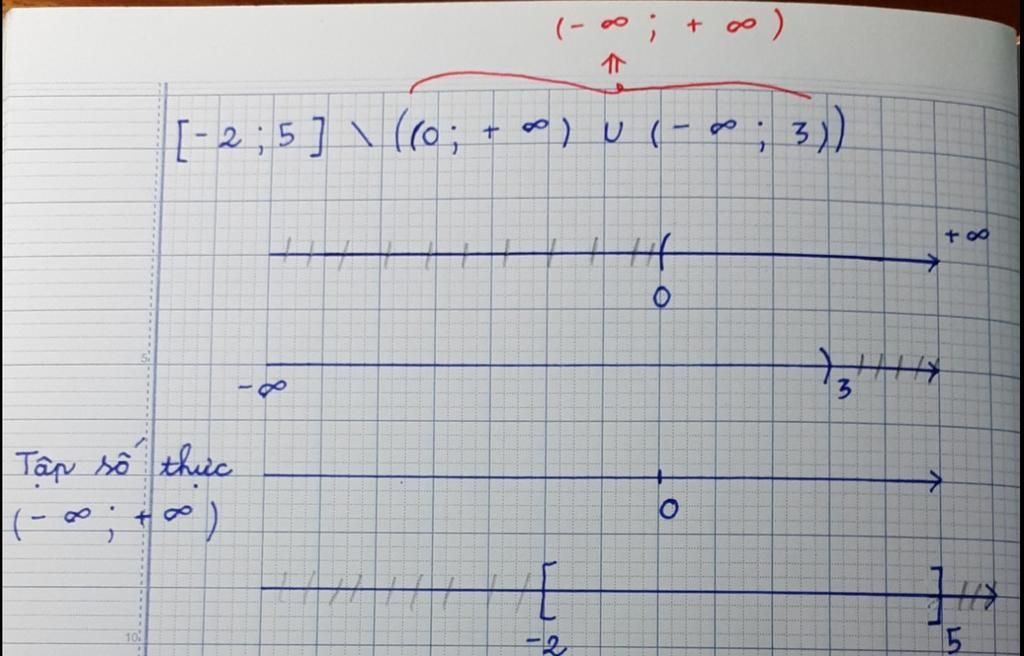 (- ∞ ; + ∞ )
⇑
[- 2 ; 5 ] \ ((0; + ∞ ) ∪ (- ∞ ; 3))
+ ∞
0
5
- ∞ 3
Tập số thực
0
(- ∞ ; + ∞ )
10
-2 5